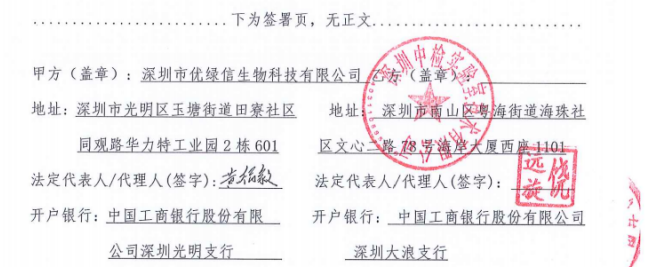 ........................下为签署页，无正文..........................
甲方（盖章）：深圳市优绿信生物科技有限公司
乙方（盖章）：
地址：深圳市光明区玉塘街道田寮社区
同观路华力特工业园2栋601
地址：深圳市南山区粤海街道海珠社
区文心二路78号海岸大厦西座1101
法定代表人/代理人(签字)：
法定代表人/代理人(签字)：
远旋
开户银行：中国工商银行股份有限
公司深圳光明支行
开户银行：中国工商银行股份有限公司
深圳大浪支行
深圳中检实验室技术有限公司